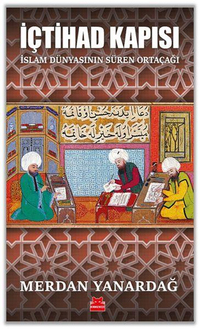 İÇTİHAD KAPISI
İSLAM DÜNYASININ SÜREN ORTAÇAĞI
MERDAN YANARDAĞ